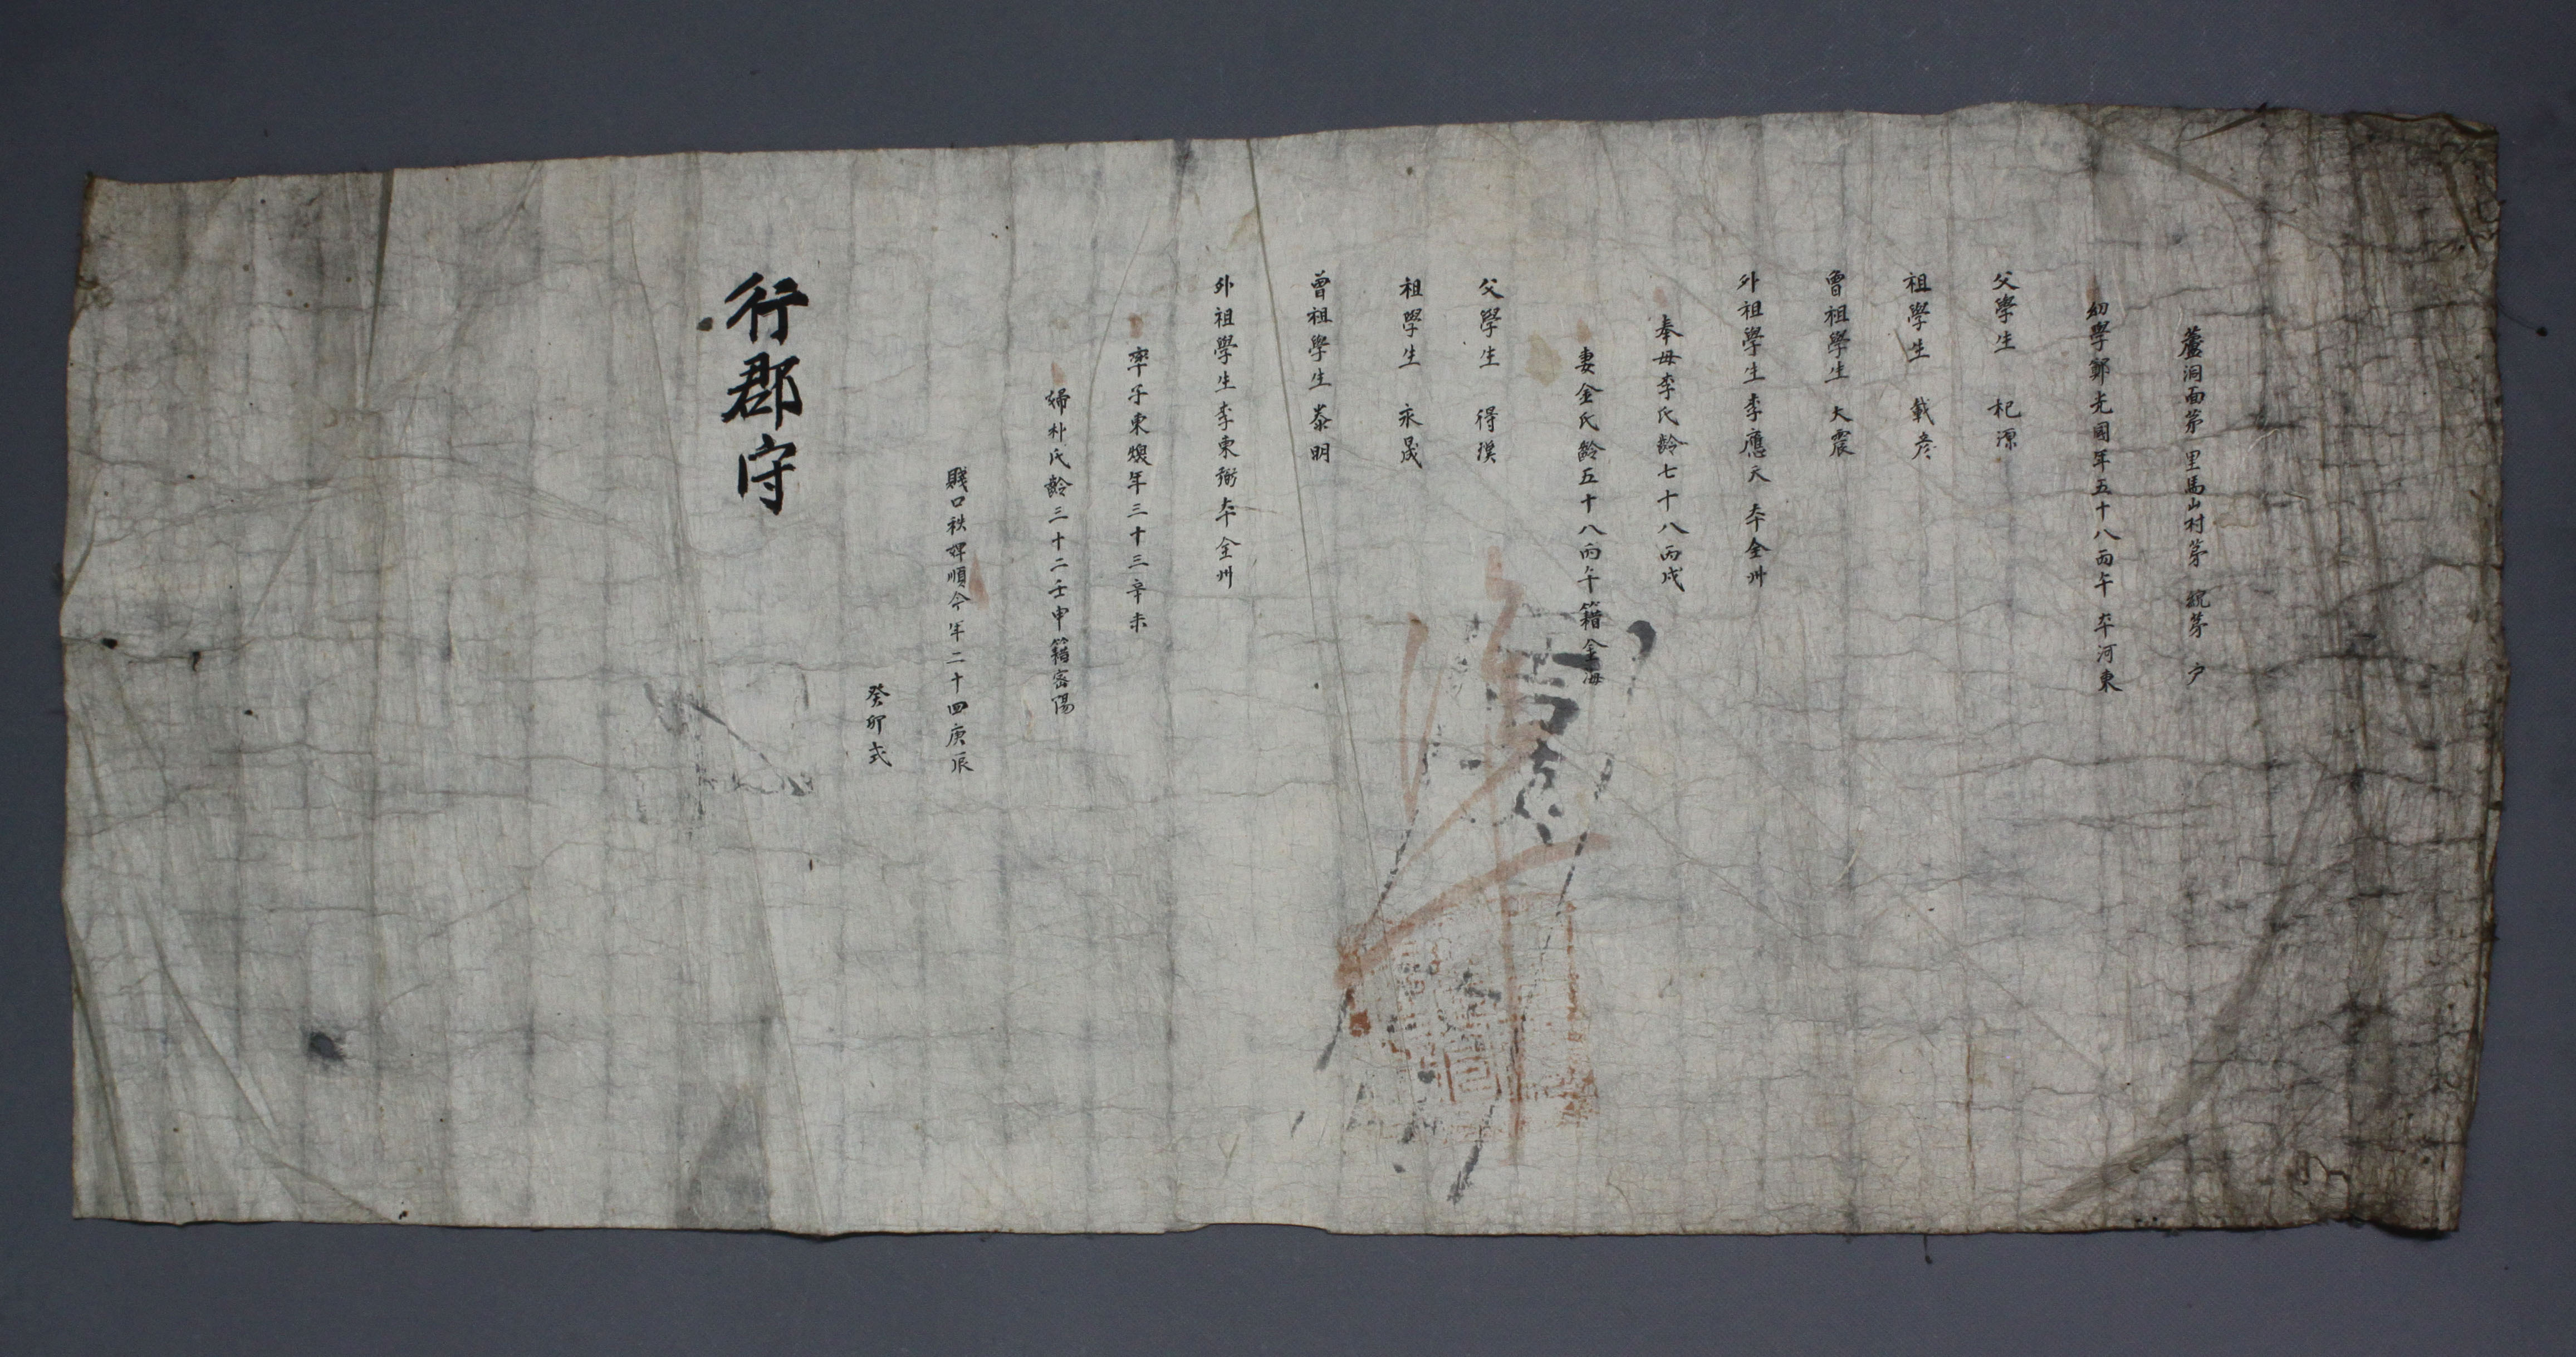 蘆洞面第 里馬山村第 統第 戶
幼學鄭光國年五十八丙午 本河東
父學生 杞源
祖學生 載彦
曾祖學生 大震
外祖學生李應天 本全州
奉母李氏齡七十八丙戌
妻金氏齡五十八丙午 籍金海
父學生 得璞
祖學生 永晟
曾祖學生 泰明
外祖學生李東弼本全州
率子東煥年三十三辛未
婦朴氏齡三十二壬申籍密陽
賤口秩婢順今年二十四庚辰
癸卯式
行郡守